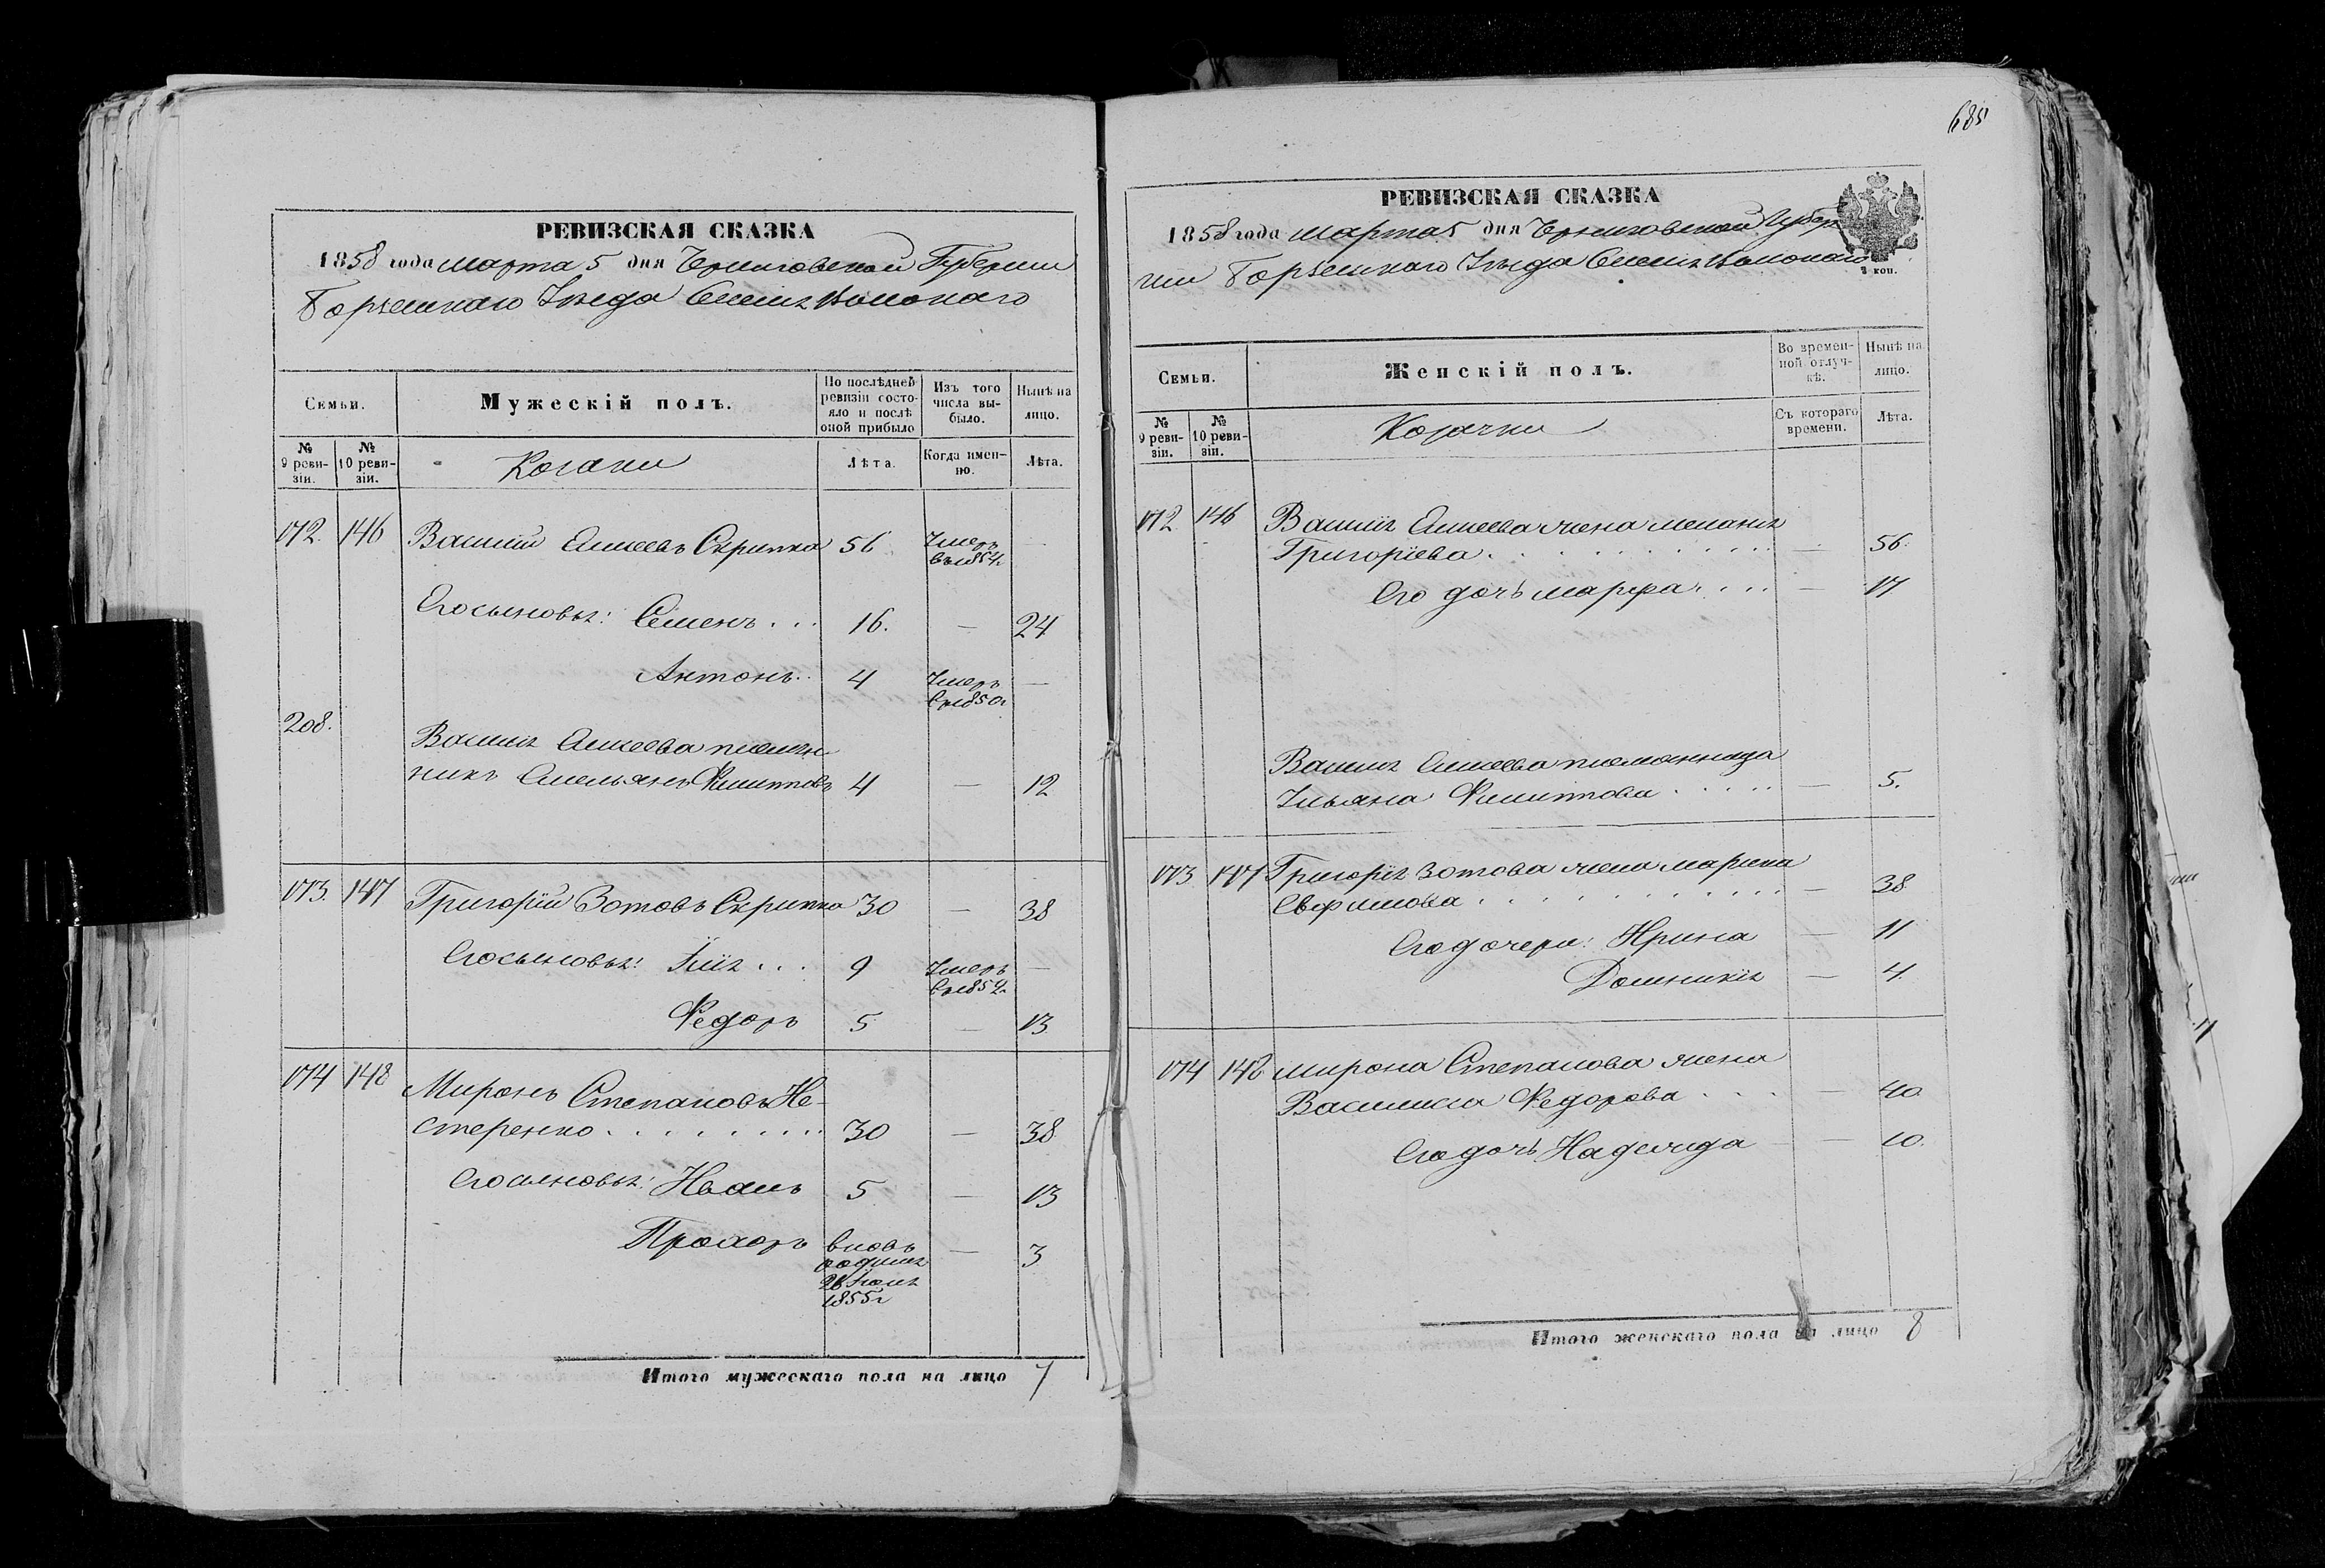 РЕВИЗСКАЯ СКАЗКА
1858 года марта 5 дня Черниговской Губернии
Борзенскаго Уезда
Семьи. Мужескій полъ. По послѣдней ревизіи состояло и послѣ оной прибыло Изъ того числа выбыло. Нынѣ на лицо.
№ 9 ревизіи. № 10 ревизіи. Козаки Лѣта. Когда именно. Лѣта.
172. 146 Василій Елисеевъ Скрипка 56 Умеръ въ 1854г
Его сыновья: Семенъ . . . 16. — 24
Антонъ . . 4 Умеръ въ 1850г —
208. Василія Елисеева племян-
никъ Емельянъ Филипповъ 4 — 12
173. 147 Григорій Зотовъ Скрипка 30 — 38
Его сыновья: Илія . . . 9 Умеръ —
Федоръ 5 — 13
174 148 Миронъ Степановъ Не-
стеренко . . . . . . . . 30 — 38
Его сыновья: Иванъ 5 — 13
Прохоръ вновь — 3
1855г
Итого мужескаго пола на лицо 7
685
РЕВИЗСКАЯ СКАЗКА
1858 года марта 5 дня Черниговской Губер
ніи Борзенскаго Уезда
коп.
Семьи. Женскій полъ. Во временной отлучкѣ. Нынѣ на лицо.
№ 9 ревизіи. № 10 ревизіи. Козачки Съ котораго времени. Лѣта.
172. 146 Василія Елисеева жена Меланія
Григоріева . . . . . . . . . . . — 56.
Его дочь Марфа . . . . — 17
Василія Елисеева племянница
Ульяна Филиппова . . . . . — 5.
173 147 Григорія Зотова жена Марина
Евфимова . . . . . . . . . . . — 38
Его дочери: Ирина — 11
Домникія — 4
174 148 Мирона Степанова жена
Василиса Федорова . . . — 40
Его дочь Надежда — 10.
Итого женскаго пола на лицо 8